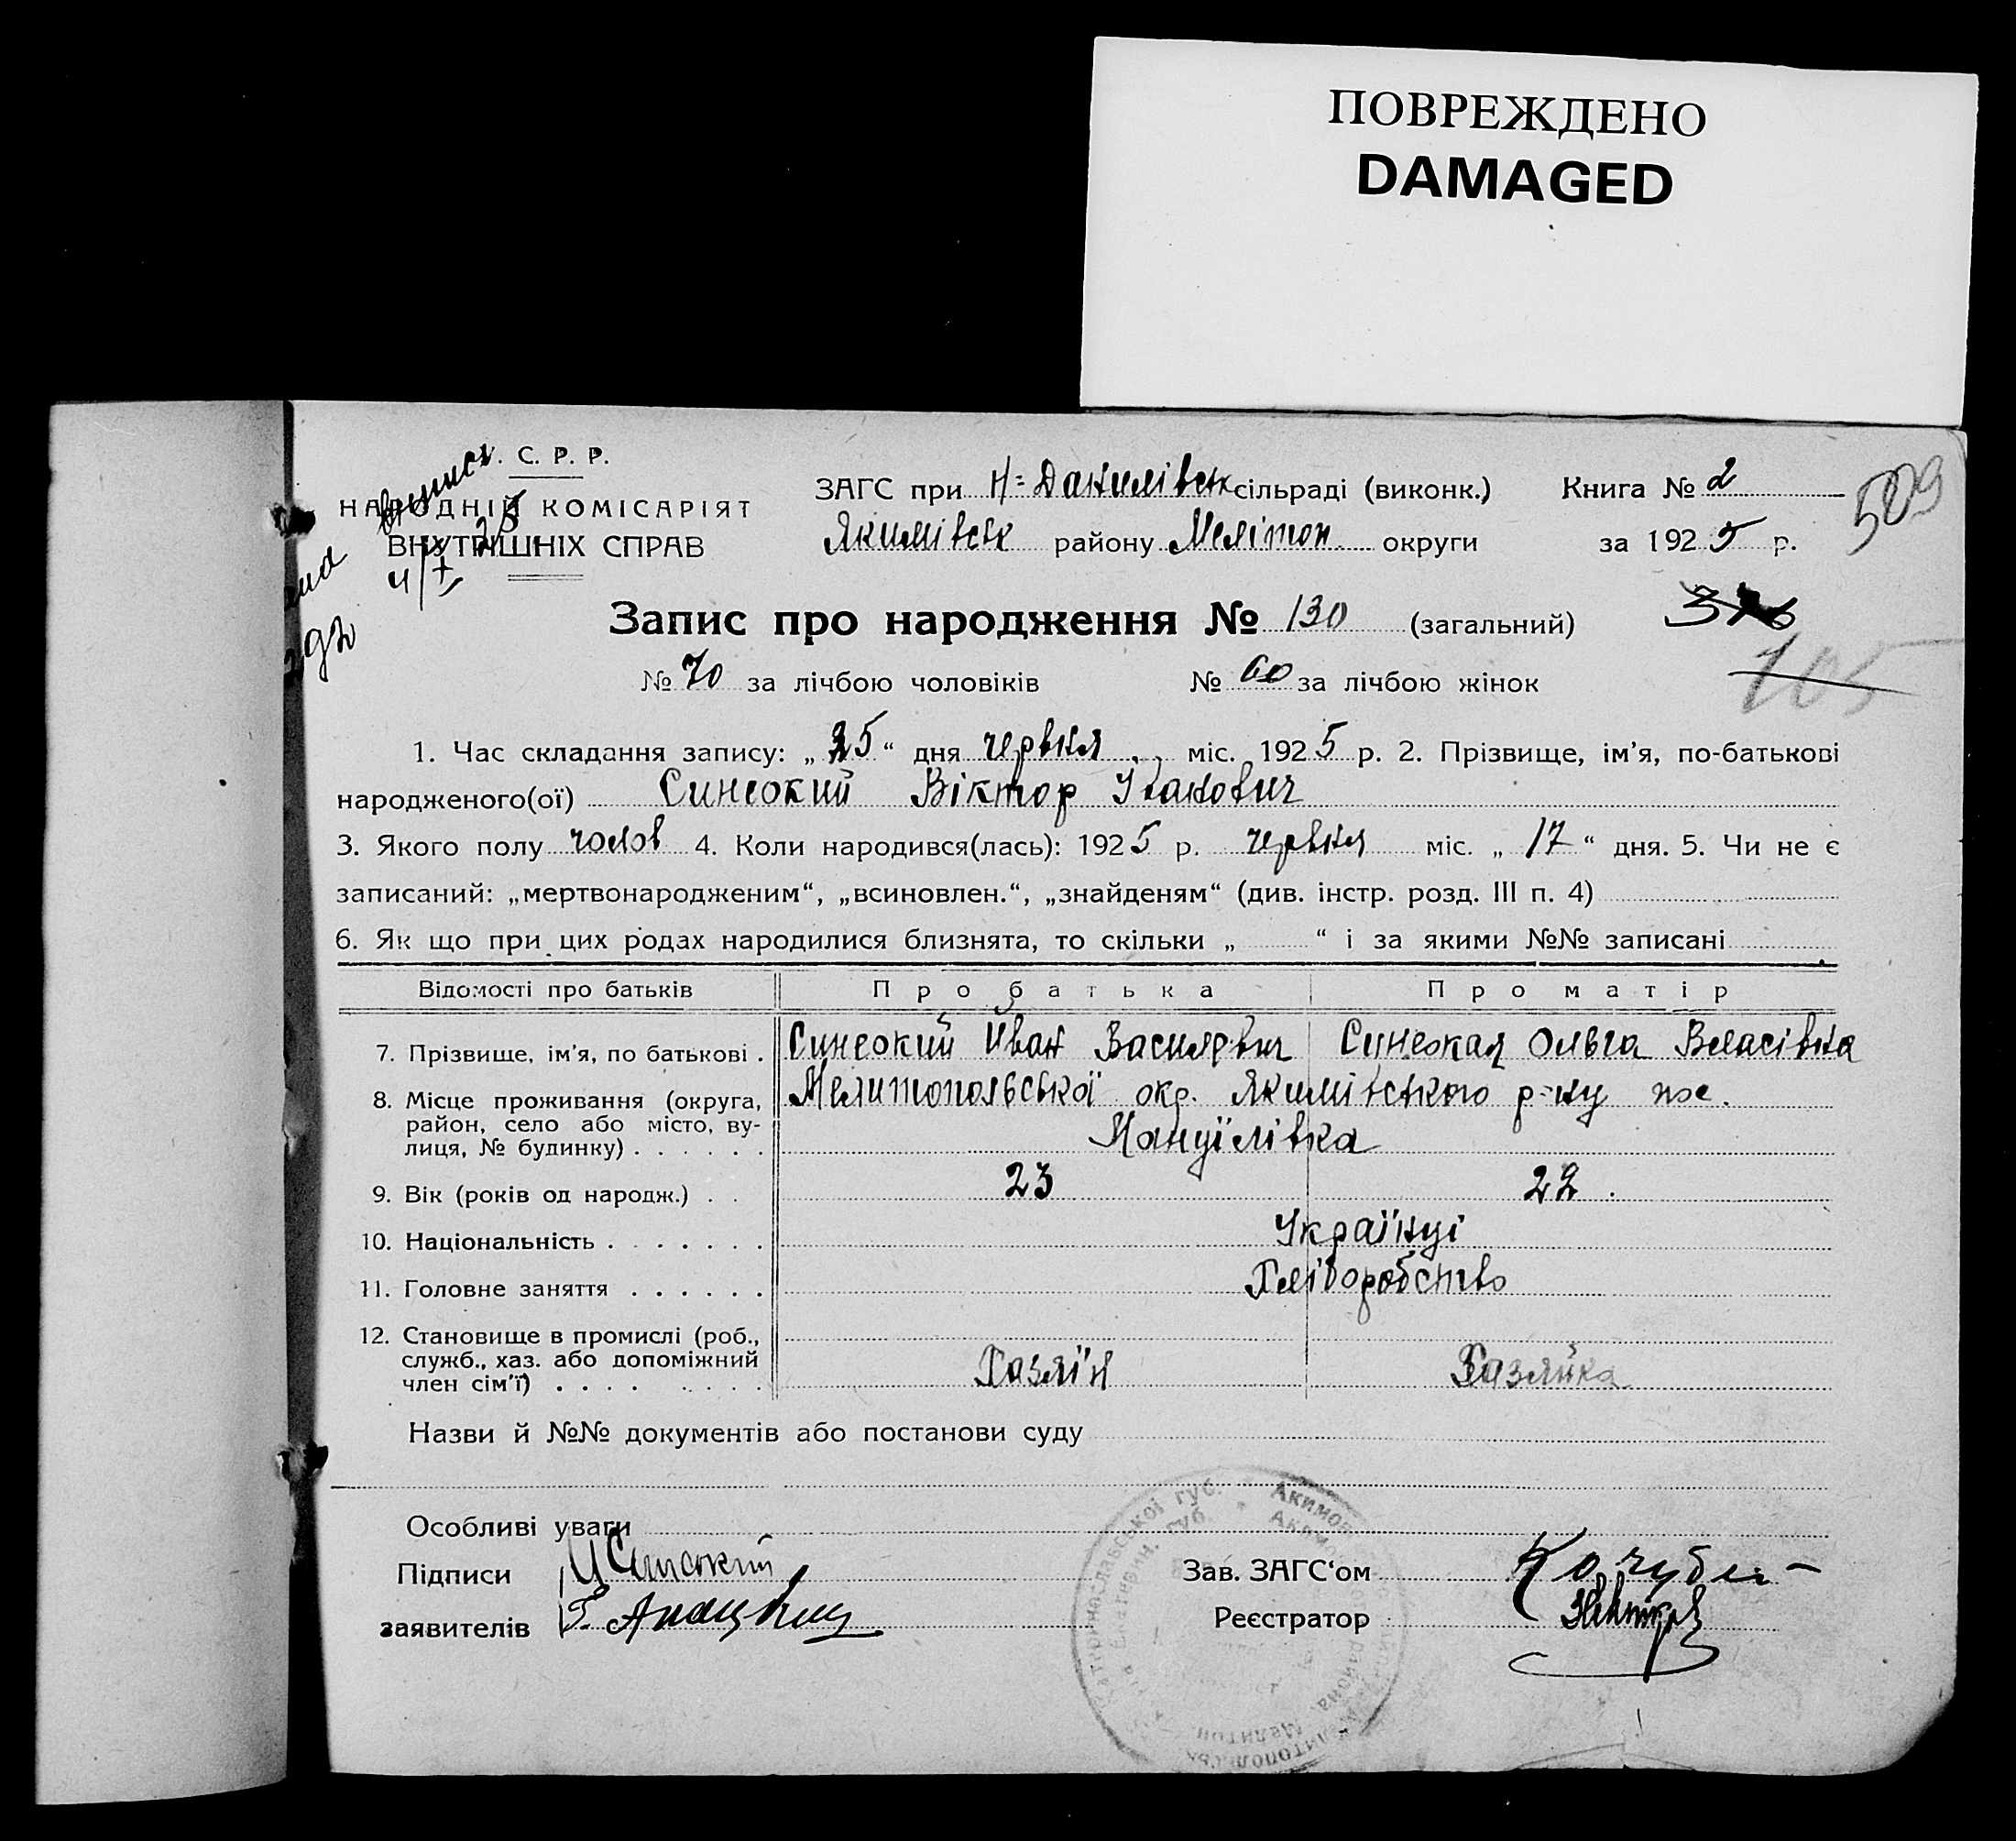 ПОВРЕЖДЕНО
DAMAGED
С. Р. Р.
НАРОДНІЙ КОМІСАРІЯТ
ВНУТРІШНІХ СПРАВ
ЗАГС при Н-Данилівськ сільраді (виконк.) Книга № 2
509
Якимівськ району Мелітоп. округи за 1925 р.
Запис про народження № 130 (загальний)
376
№ 70 за лічбою чоловіків № 60 за лічбою жінок
105
1. Час складання запису: „25“ дня червня міс. 1925 р. 2. Прізвище, ім’я, по-батькові
народженого(ої) Синеокий Віктор Іванович
3. Якого полу чолов 4. Коли народився(лась): 1925 р. червня міс. „17“ дня. 5. Чи не є
записаний: „мертвонародженим“, „всиновлен.“, „знайденям“ (див. інстр. розд. III п. 4)
6. Як що при цих родах народилися близнята, то скільки „ “ і за якими №№ записані
Відомості про батьків Про батька Про матір
7. Прізвище, ім’я, по батькові . Синеокий Иван Василевич Синеокая Ольга Власівна
8. Місце проживання (округа, район, село або місто, вулиця, № будинку) . . . . . . Мелитопольської окр. Якимівського р-ну пос.
Мануїлівка
9. Вік (років од народж.) . . 23 22
10. Національність . . . . . . . Українці
11. Головне заняття . . . . . . Хліборобство
12. Становище в промислі (роб., служб., хаз. або допоміжний член сім’ї) . . . . . . . . Хазяїн Хазяйка
Назви й №№ документів або постанови суду
Особливі уваги
Підписи И Синеокий Зав. ЗАГС‘ом Кочубей
заявителів Реєстратор